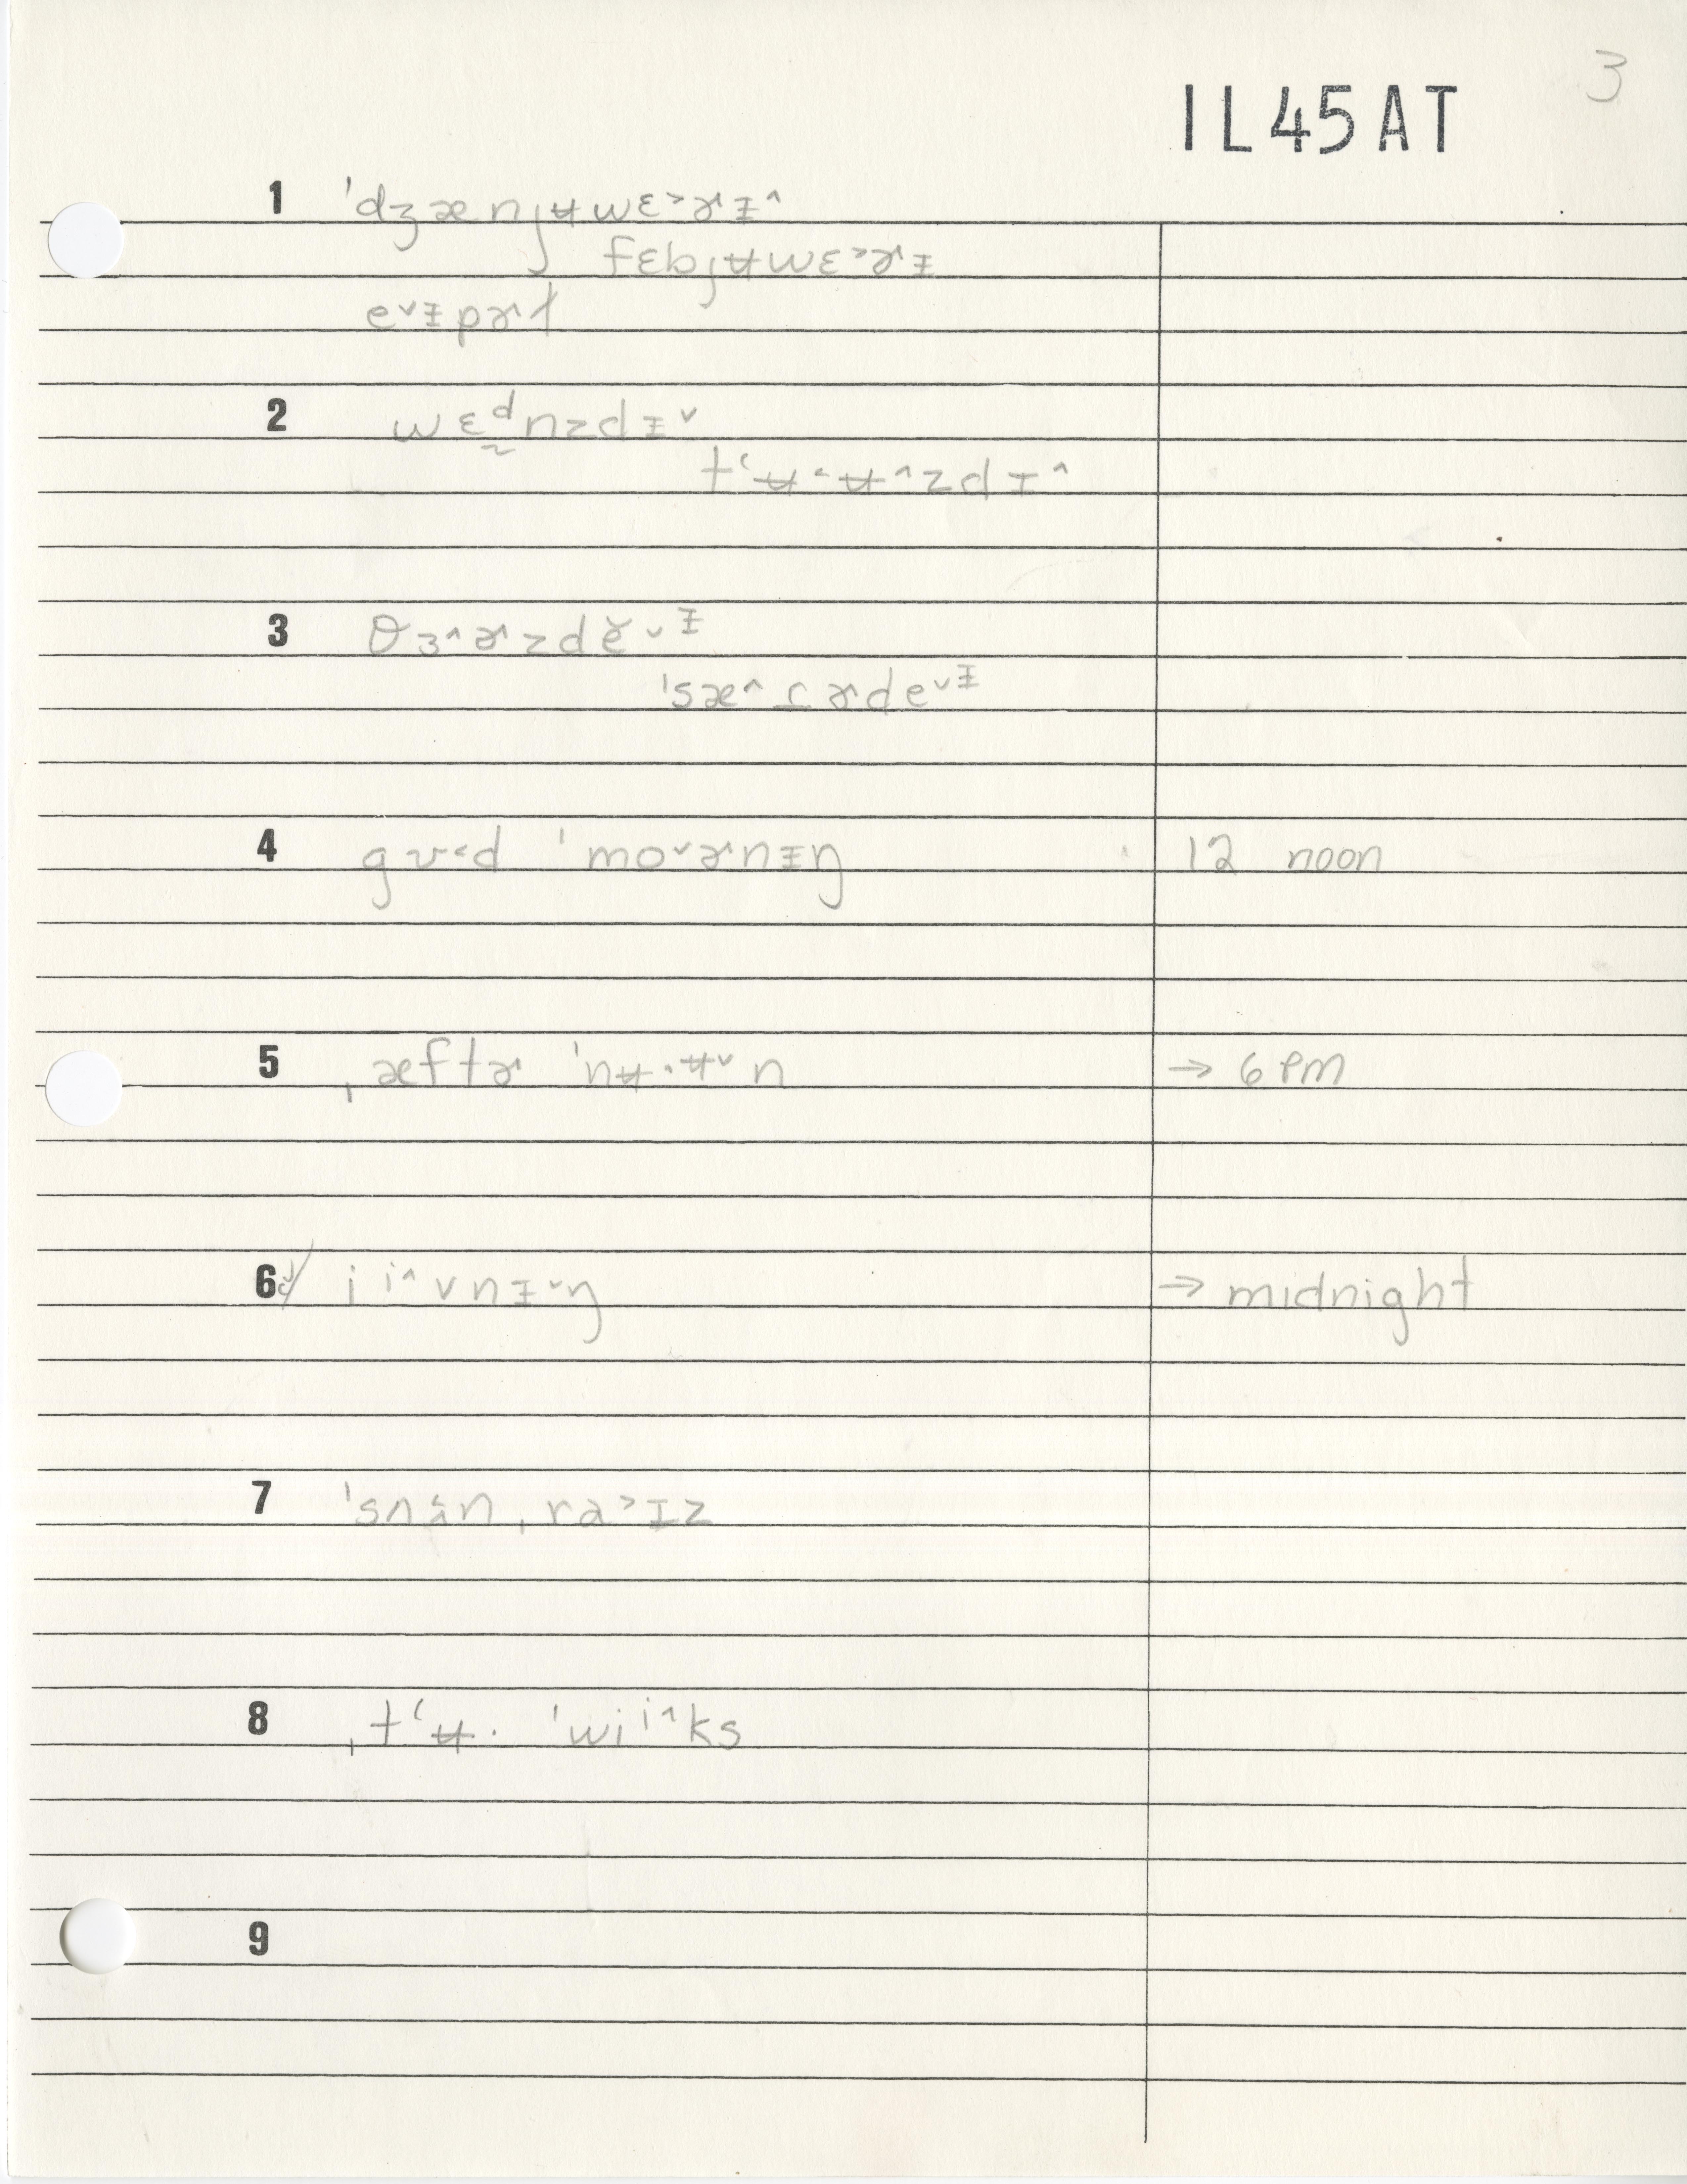 3
1L45AT
1 ˈdʒænjʉwɛ˃ɚɪ̵˄
fɛbjʉwɛ˃ɚɪ̵
e˅ɪ̵pɚɫ
2 wɛ̰ᵈnzdɪ̵˅
tʻʉ˂·ʉ˄zdɪ˄
3 θɜ˄ɚzdĕ˅ᶧ
ˈsæ˄ɾɚde˅ᶧ
4 gʊ˂d ˈmo˅ɚnɪ̵ŋ 12 noon
5 ˌæftɚ ˈnʉ·ᵾ˅n → 6 PM
6 iⁱ˄vnɪ̵˅ŋ → midnight
7 ˈsʌn ˌra˃ɪz
8 ˌtʻʉ· ˈwiⁱ˄ks
9